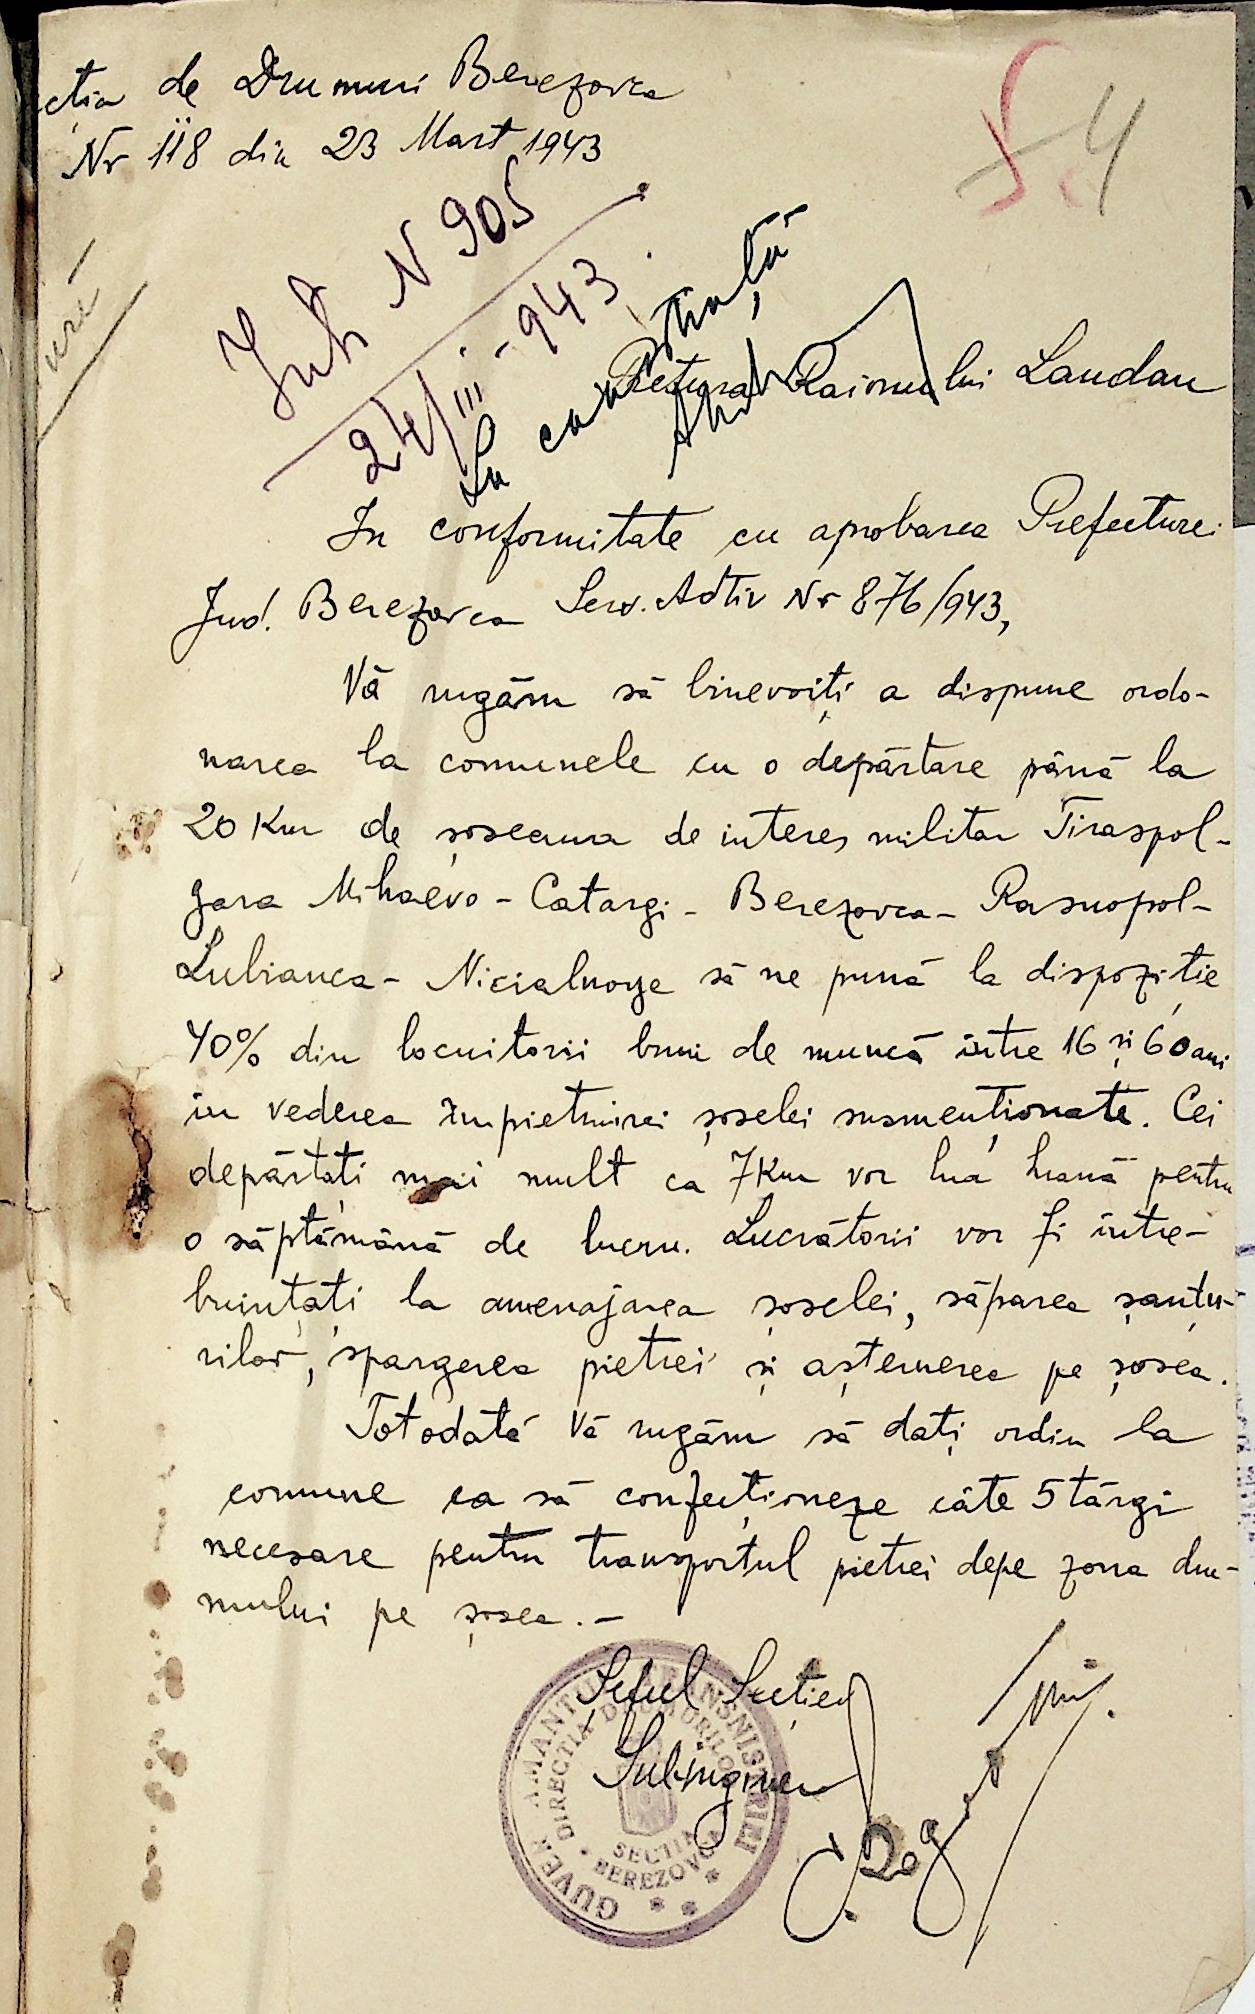 ctia de Drumuri Berezovca
Nr 118 din 23 Mart 1943
54
N 905
24/III-943
La cunoștință
Pretura Raionului Landau
In conformitate cu aprobarea Prefecturei
Jud. Berezovca Serv. Adtiv Nr 876/943,
Vă rugăm să binevoiți a dispune ordo-
narea la comunele cu o depărtare până la
20 Km de șoseaua de interes militar Tiraspol-
gara Mihaevo - Catargi - Berezovca - Rasnopol-
Lubianca - să ne pună la dispoziție
40% din locuitorii buni de muncă intre 16 și 60 ani
in vederea împietruirei șoselei susmenționate. Cei
depărtați mai mult ca 7 Km vor lua hrană pentru
o săptămână de lucru. Lucrătorii vor fi intre-
buințați la amenajarea șoselei, săparea șanțu-
rilor, spargerea pietrei și așternerea pe șosea.
Totodată Vă rugăm să dați ordin la
comune ca să confecționeze câte 5 tărgi
necesare pentru transportul pietrei depe zona dru-
mului pe șosea.-
Seful Secției
Subinginer
GUVERNAMANTUL TRANSNISTRIEI
DIRECTIA DRUMURILOR
SECTIA
BEREZOVCA